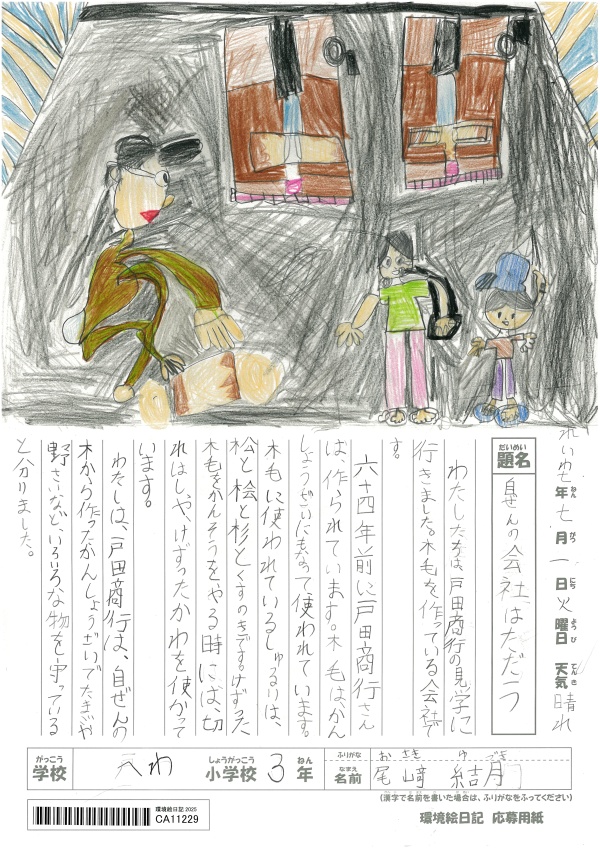 れい和七年七月一日火曜日 天気 晴れ
ねん がつ にち ようび てんき
だいめい
題名 自ぜんの会社はただ一つ
わたしたちは、戸田商行の見学に
行きました。木毛を作っている会社で
す。
六十四年前に戸田商行さん
は、作られています。木毛は、かん
しょうざいにもなって、使われています。
木毛に使われているしゅるいは、
松と桧と杉とくすのきです。けずった
木毛をかんそうをやる時には、切
れはしや、けずったかわを使かって
います。
わたしは、戸田商行は、自ぜんの
木から作ったかんしょうざいでたまごや
野さいなど、いろいろな物を守っている
と分りました。
がっこう しょうがっこう ねん ふりがな おさき ゆづき
学校 小学校 3年 なまえ 名前 尾﨑 結月
(漢字で名前を書いた場合は、ふりがなをふってください)
環境絵日記 2025
CA11229
環境絵日記 応募用紙